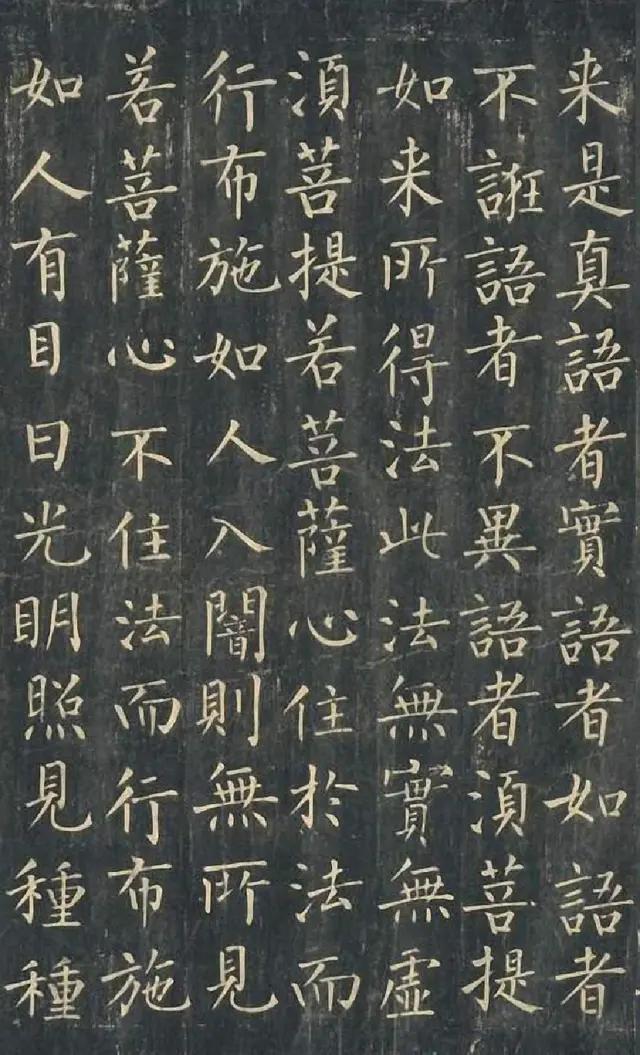 来是真語者實語者如語者
不誑語者不異語者湏菩提
如来所得法此法無實無虛
湏菩提若菩薩心住於法而
行布施如人入闇則無所見
若菩薩心不住法而行布施
如人有目日光明照見種種